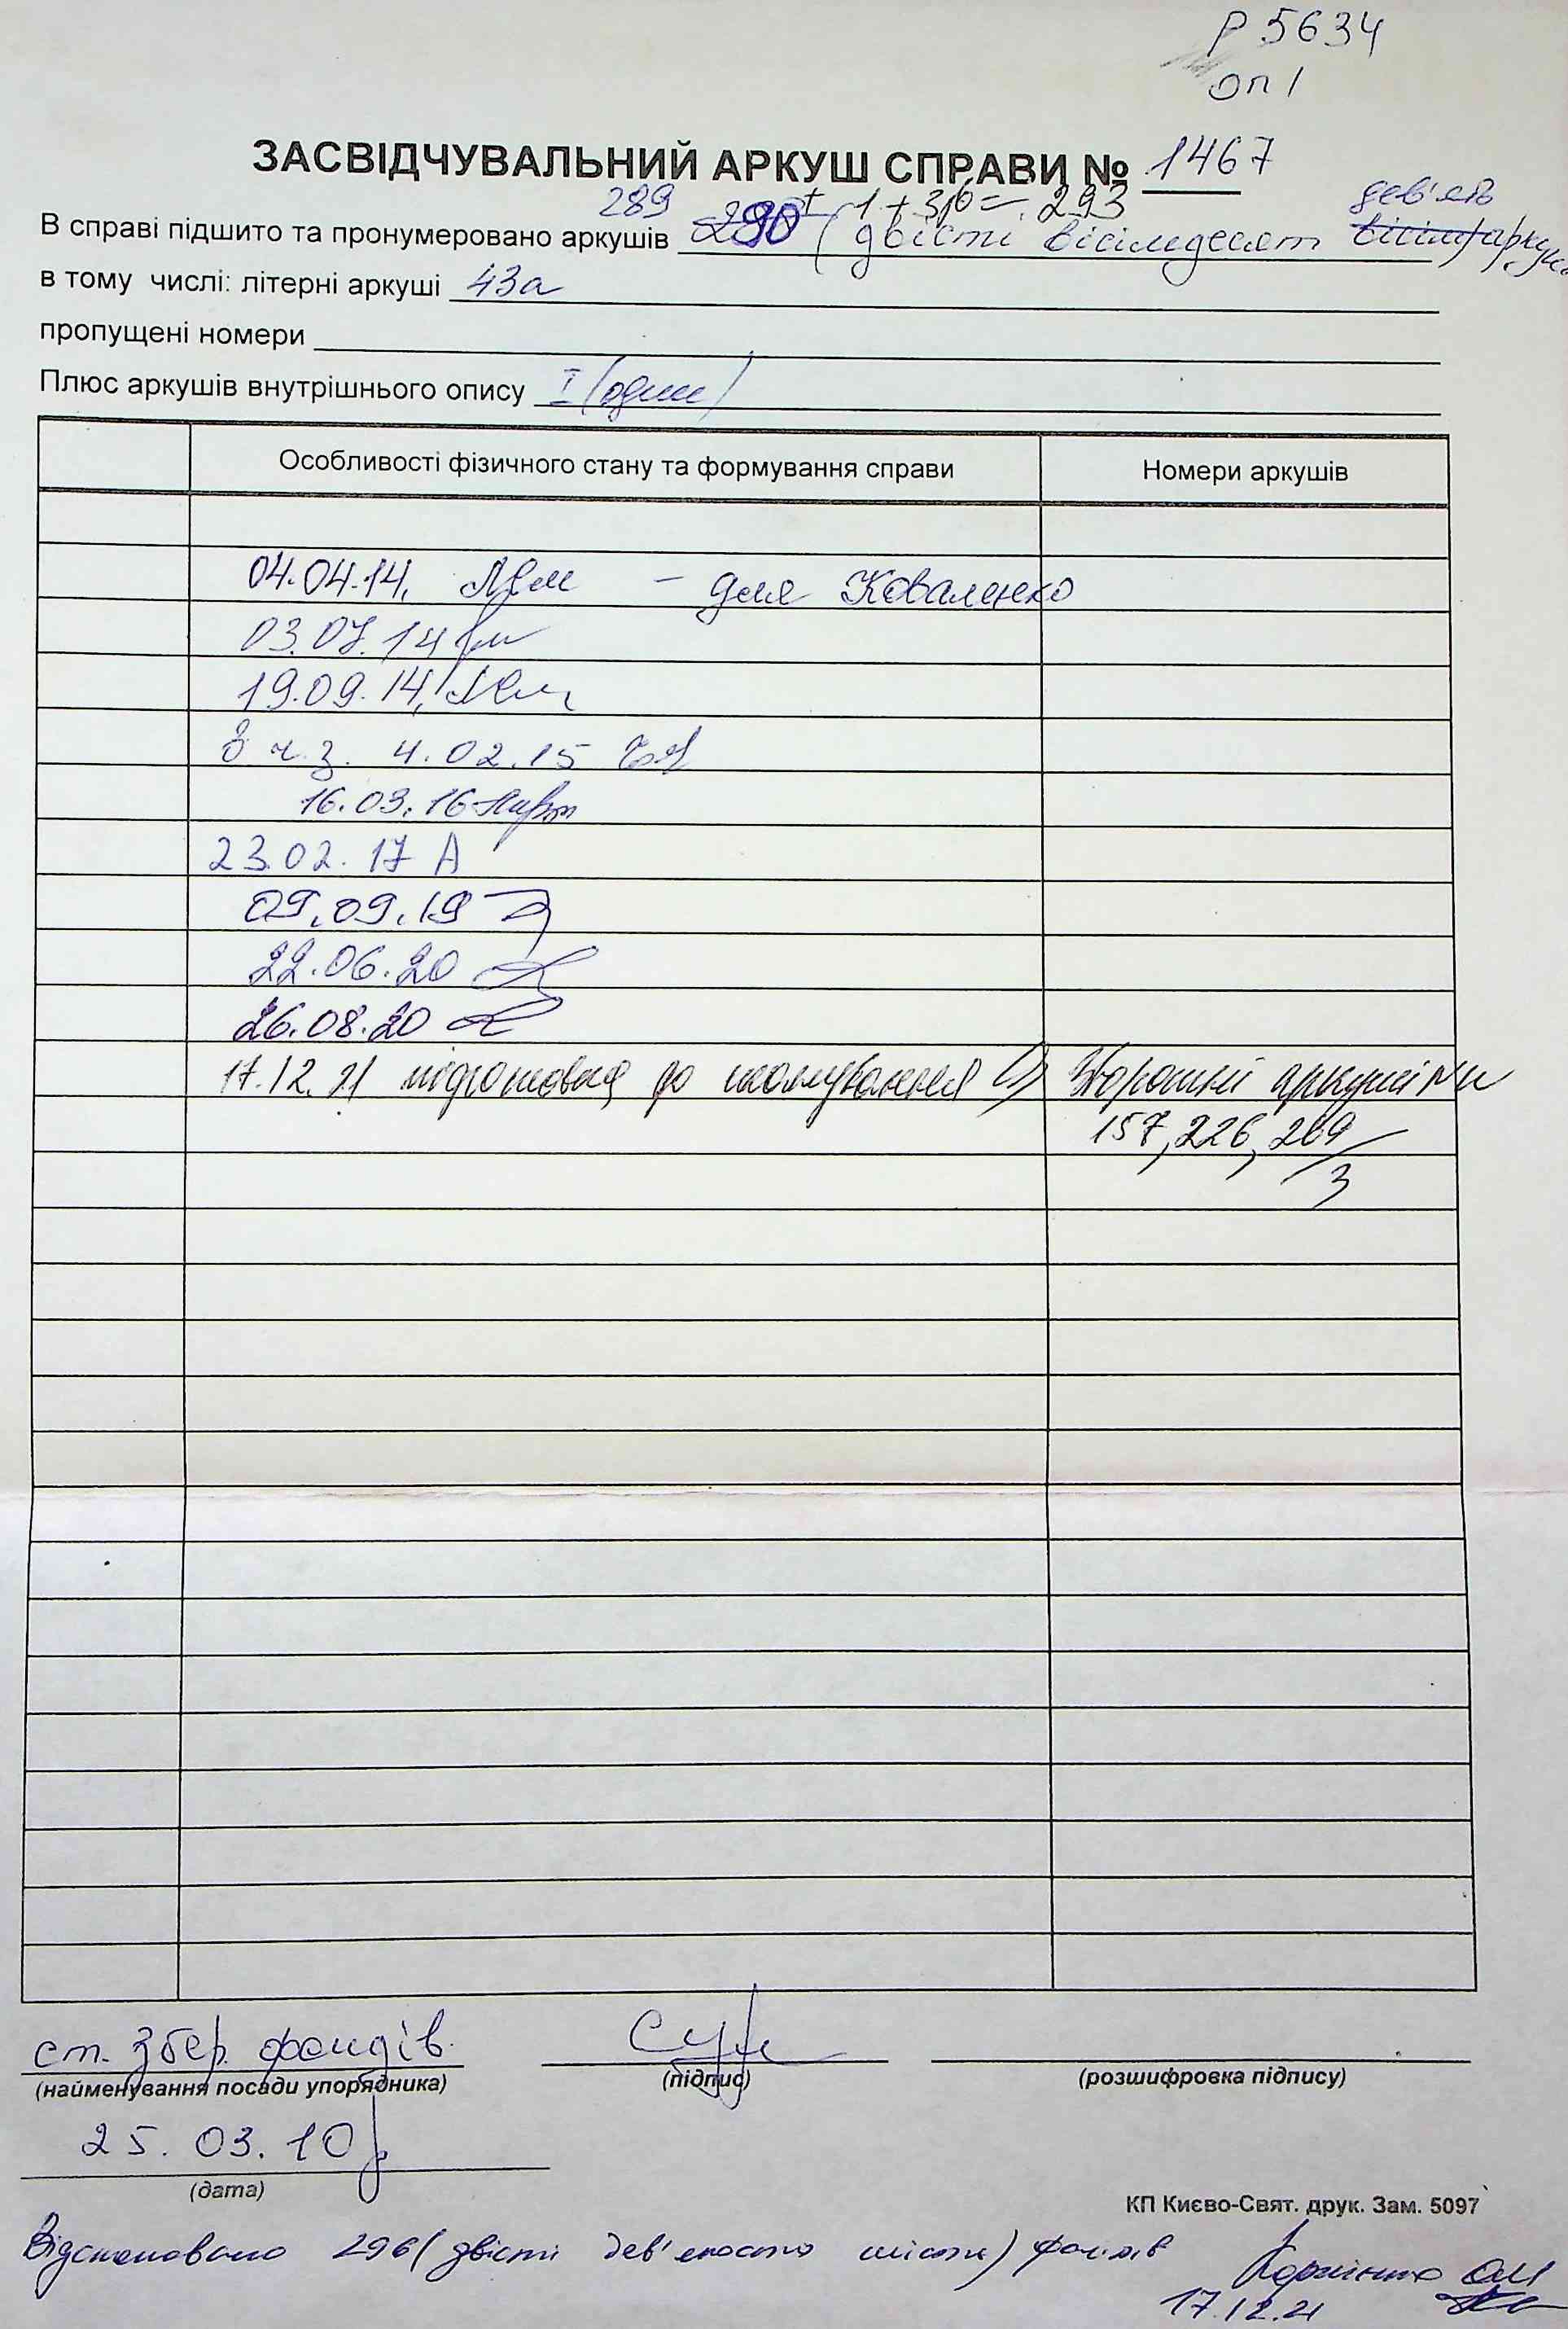 Р 5634
оп 1
ЗАСВІДЧУВАЛЬНИЙ АРКУШ СПРАВИ № 1467
289 + 1 + 3 = 293 дев'ять
В справі підшито та пронумеровано аркушів 290 (двісті вісімдесят вісім) аркуш
в тому числі: літерні аркуші 43а
пропущені номери
Плюс аркушів внутрішнього опису I (один)
Особливості фізичного стану та формування справи Номери аркушів
04.04.14, – для Коваленко
03.07.14
19.09.14,
ч.з. 4.02.15
16.03.16
23.02.17 А
09.09.19
22.06.20
26.08.20
17.12.21 підготовка до сканування Зворотні аркуші №№
157, 226, 269
3
ст. збер. фондів.
(найменування посади упорядника) (підпис) (розшифровка підпису)
25.03.10р
(дата)
КП Києво-Свят. друк. Зам. 5097
Відскановано 296 (двісті дев'яносто шість) файлів
17.12.21